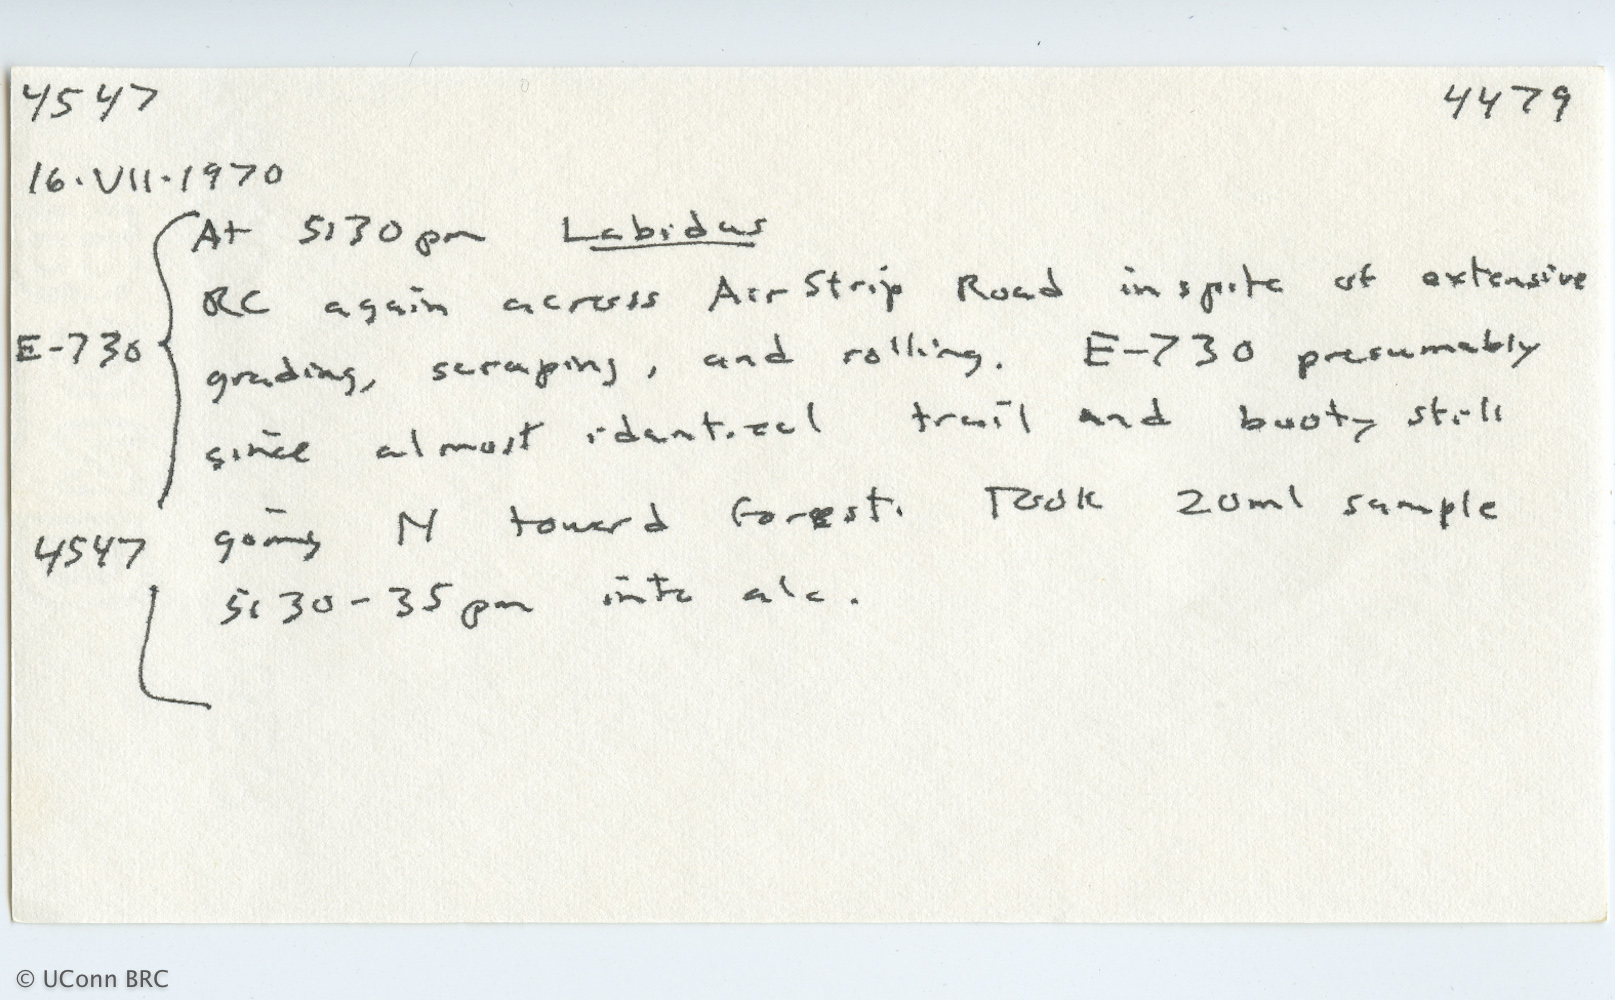 4547 4479
16.VII.1970
At 5:30pm Labidus
RC again across Air Strip Road in spite of extensive
E-730 grading, scraping, and rolling. E-730 presumably
since almost identical trail and booty still
4547 going N toward forest. Took 20ml sample
5:30-35pm into alc.
© UConn BRC